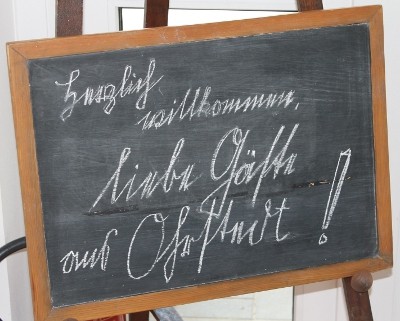 Herzlich
willkommen,
liebe Gäste
aus Ohrstedt!